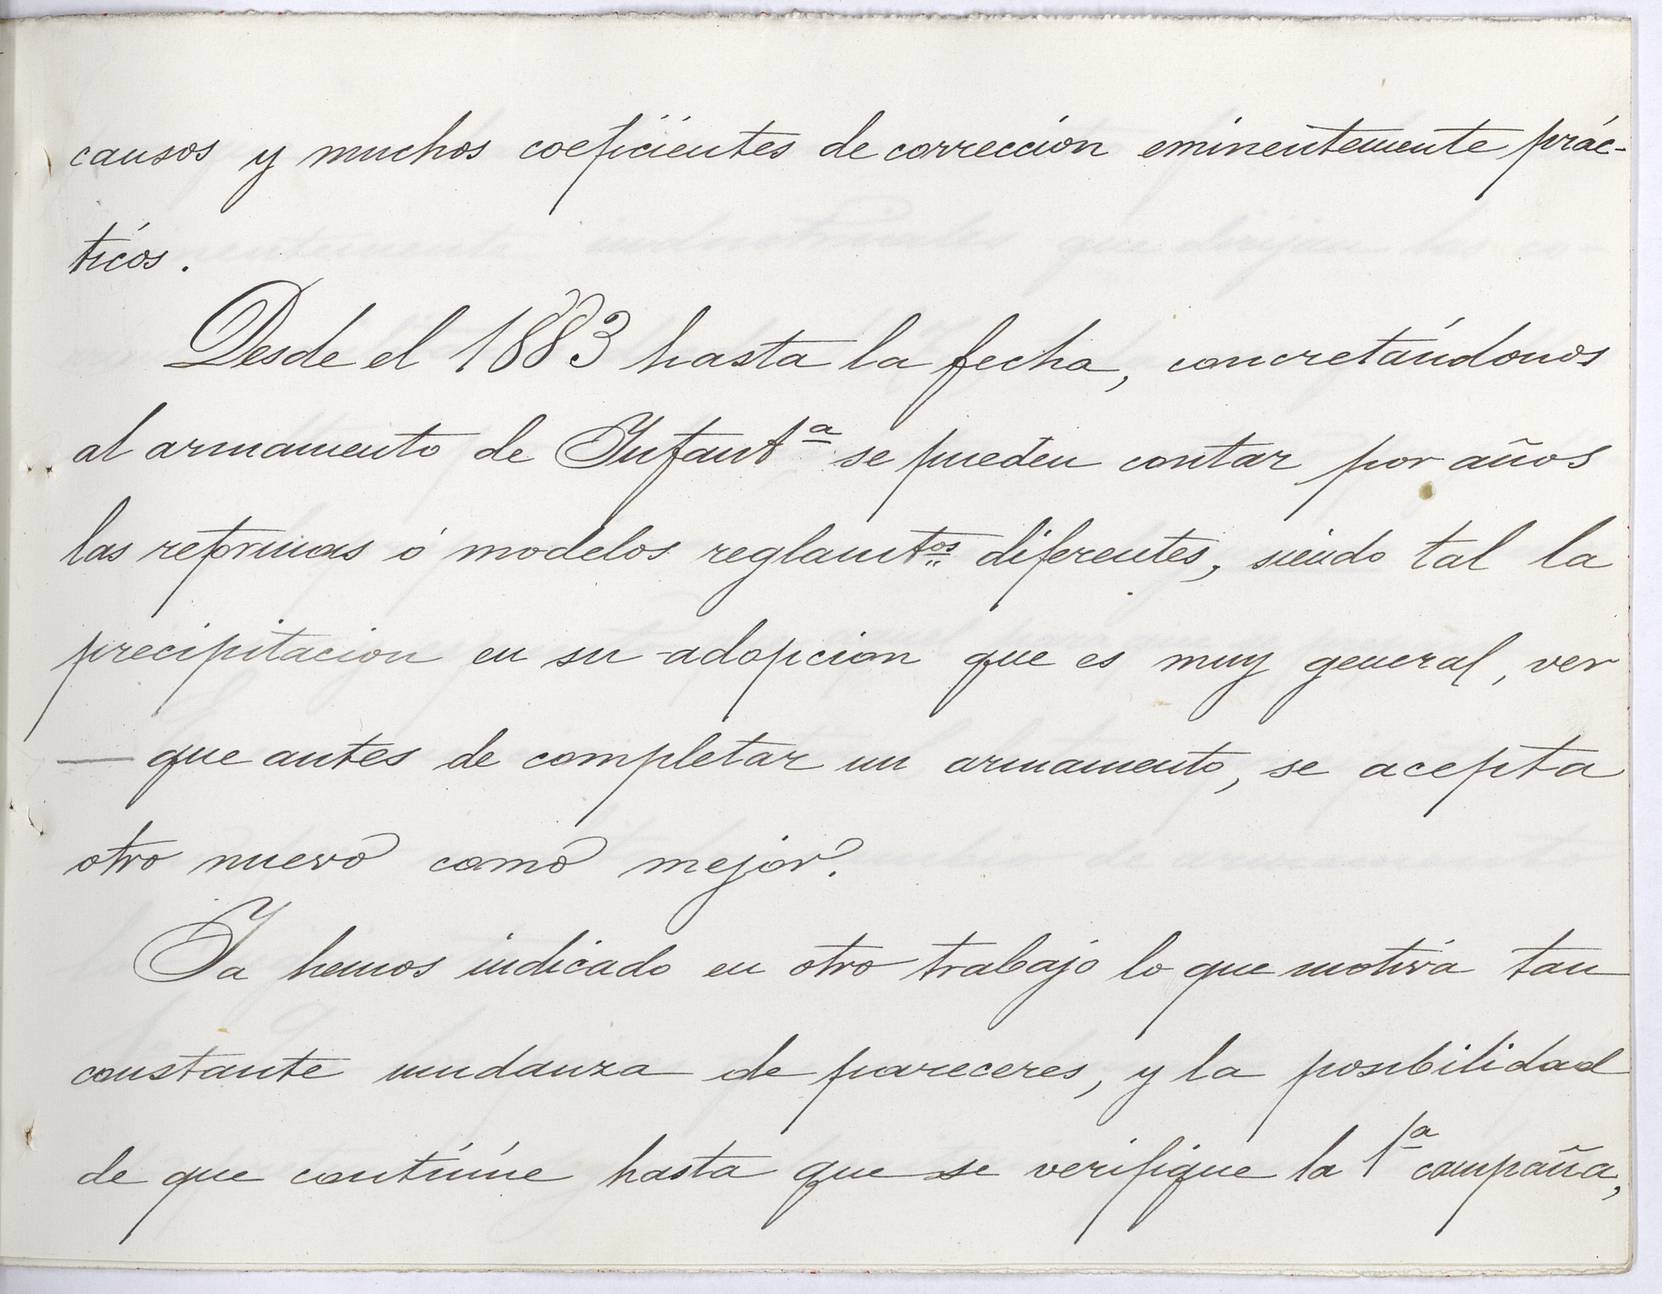 causos y muchos coeficientes de correccion eminentemente prác-
ticos.
Desde el 1883 hasta la fecha, concretándonos
al armamento de Infantª se pueden contar por años
las reformas ó modelos reglamtos diferentes, siendo tal la
precipitacion en su adopcion que es muy general, ver
— que antes de completar un armamento, se acepta
otro nuevo como mejor.
Ya hemos indicado en otro trabajo lo que motiva tan
constante mudanza de pareceres, y la posibilidad
de que continúe hasta que se verifique la 1ª campaña,